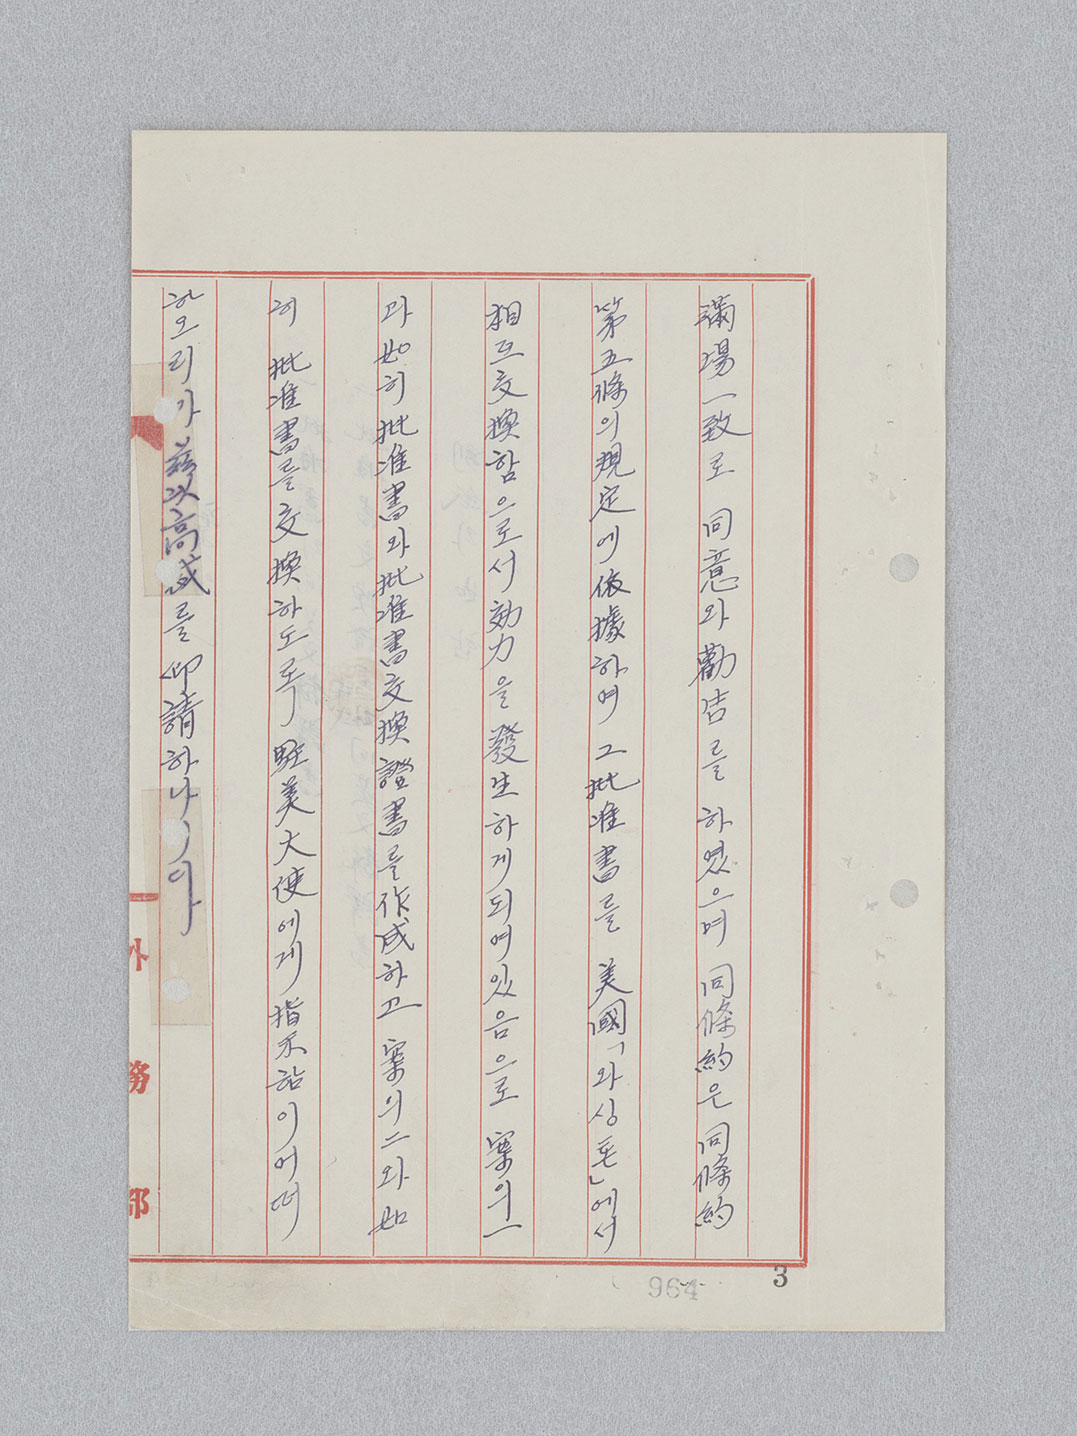 滿場一致로 同意와 勸告를 하였으며 同條約은 同條約
第五條의 規定에 依據하여 그 批准書를 美國「와싱톤」에서
相互交換함으로서 効力을 發生하게되여있음으로 案의一
과 如히 批准書와 批准書交換證書를 作成하고 案의二와 如
히 批准書를 交換하도록 駐美大使에게 指示함이 어떠
하오리가 玆以高裁를 仰請하나이다
外務部
964
3